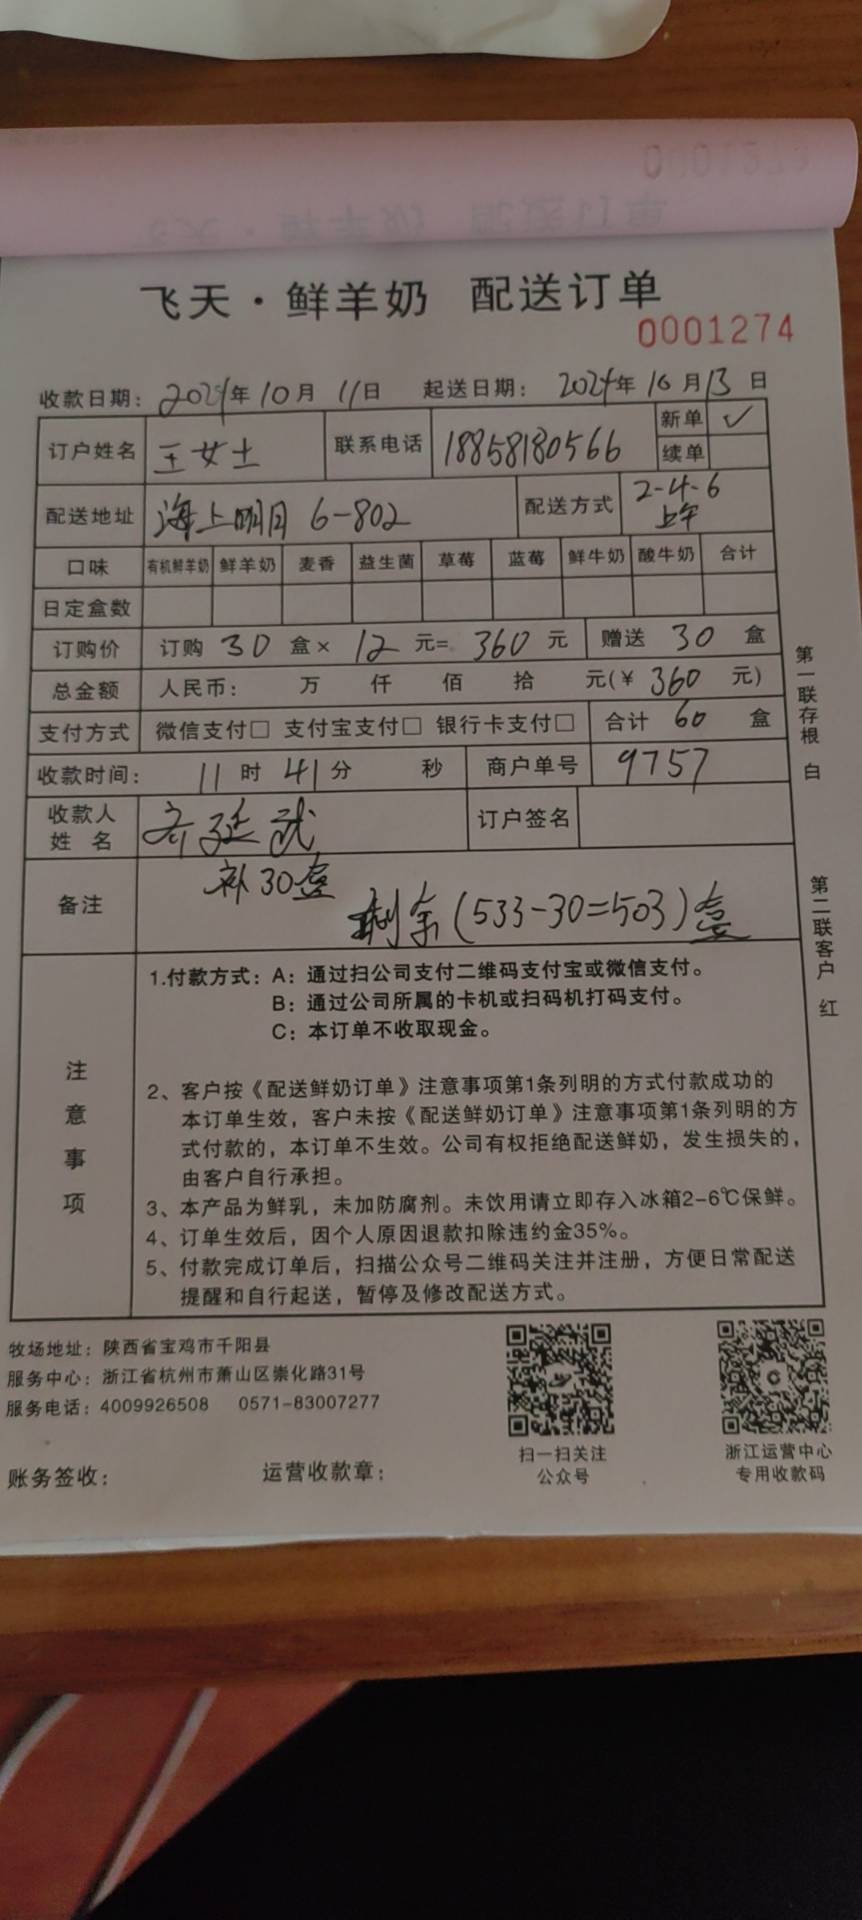 飞天·鲜羊奶 配送订单
0001274
收款日期: 2024年10月11日 起送日期: 2024年10月13日
订户姓名 王女士 联系电话 18858180566 新单 ✓
续单
配送地址 海上明月 6-802 配送方式 2-4-6 上午
口味 有机鲜羊奶 鲜羊奶 麦香 益生菌 草莓 蓝莓 鲜牛奶 酸牛奶 合计
日定盒数
订购价 订购 30 盒× 12 元= 360 元 赠送 30 盒
总金额 人民币: 万 仟 佰 拾 元(¥ 360 元)
支付方式 微信支付□ 支付宝支付□ 银行卡支付□ 合计 60 盒
收款时间: 11时41分 秒 商户单号 9757
收款人姓名 延武 订户签名
备注 补30盒
剩余(533-30=503)盒
注意事项
1.付款方式: A: 通过扫公司支付二维码支付宝或微信支付。
B: 通过公司所属的卡机或扫码机打码支付。
C: 本订单不收取现金。
2、客户按《配送鲜奶订单》注意事项第1条列明的方式付款成功的
本订单生效，客户未按《配送鲜奶订单》注意事项第1条列明的方
式付款的，本订单不生效。公司有权拒绝配送鲜奶，发生损失的，
由客户自行承担。
3、本产品为鲜乳，未加防腐剂。未饮用请立即存入冰箱2-6℃保鲜。
4、订单生效后，因个人原因退款扣除违约金35%。
5、付款完成订单后，扫描公众号二维码关注并注册，方便日常配送
提醒和自行起送，暂停及修改配送方式。
第一联存根 白
第二联客户 红
牧场地址: 陕西省宝鸡市千阳县
服务中心: 浙江省杭州市萧山区崇化路31号
服务电话: 4009926508 0571-83007277
扫一扫关注
公众号
浙江运营中心
专用收款码
账务签收: 运营收款章: